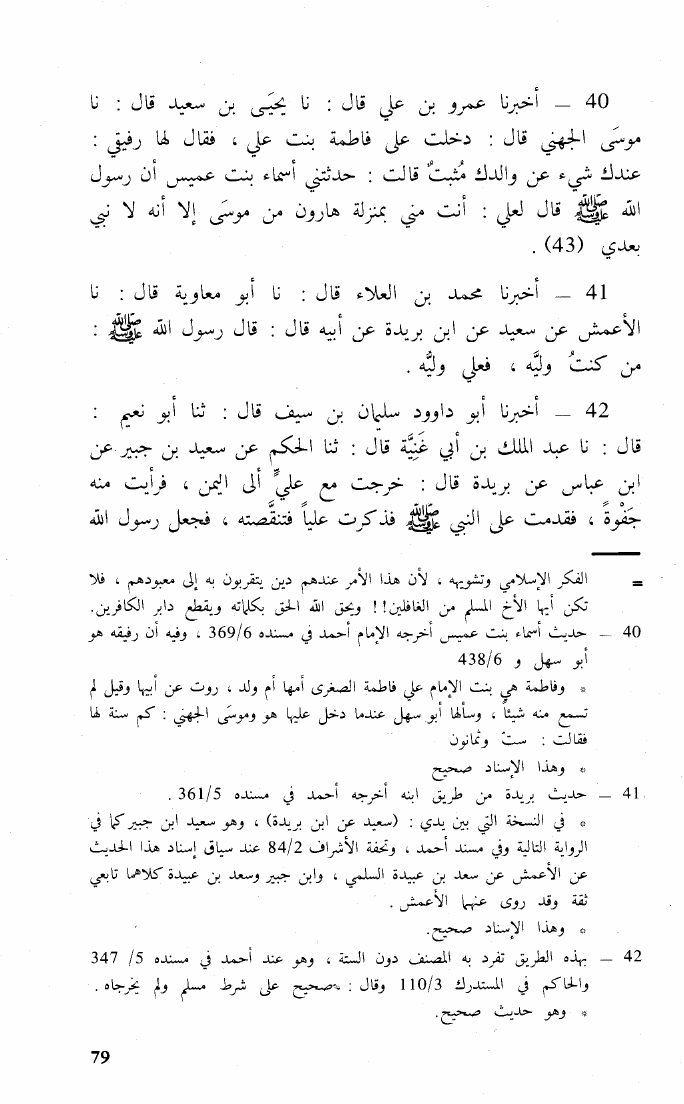 40 — أخبرنا عمرو بن علي قال : نا يحيَى بن سعيد قال : نا
موسَى الجهني قال : دخلت على فاطمة بنت علي ، فقال لها رفيقي :
عندك شيء عن والدك مُثبتٌ قالت : حدثتني أسماء بنت عميس أن رسول
الله ﷺ قال لعلي : أنت مني بمنزلة هارون من موسَى إلا أنه لا نبي
بعدي (43) .
41 — أخبرنا محمد بن العلاء قال : نا أبو معاوية قال : نا
الأعمش عن سعيد عن ابن بريدة عن أبيه قال : قال رسول الله ﷺ :
من كنتُ وليَّه ، فعلي وليُّه .
42 — أخبرنا أبو داوود سليمان بن سيف قال : ثنا أبو نعيم :
قال : نا عبد الملك بن أبي غَنِيَّة قال : ثنا الحكم عن سعيد بن جبير عن
ابن عباس عن بريدة قال : خرجت مع عليٍّ ألى اليمن ، فرأيت منه
جَفْوةً ، فقدمت على النبي ﷺ فذكرت علياً فتنقَّصته ، فجعل رسول الله
= الفكر الإسلامي وتشويهه ، لأن هذا الأمر عندهم دين يتقربون به إلى معبودهم ، فلا
تكن أيها الأخ المسلم من الغافلين!! ويحق الله الحق بكلماته ويقطع دابر الكافرين.
40 — حديث أسماء بنت عميس أخرجه الإمام أحمد في مسنده 369/6 ، وفيه أن رفيقه هو
أبو سهل و 438/6
* وفاطمة هي بنت الإمام علي فاطمة الصغرى أمها أم ولد ، روت عن أبيها وقيل لم
تسمع منه شيئاً ، وسألها أبو سهل عندما دخل عليها هو وموسَى الجهني : كم سنة لها
فقالت : ستٌ وثمانون
* وهذا الإسناد صحيح
41 — حديث بريدة من طريق ابنه أخرجه أحمد في مسنده 361/5 .
* في النسخة التي بين يدي : (سعيد عن ابن بريدة) ، وهو سعيد ابن جبير كما في
الرواية التالية وفي مسند أحمد ، وتحفة الأشراف 84/2 عند سياق إسناد هذا الحديث
عن الأعمش عن سعد بن عبيدة السلمي ، وابن جبير وسعد بن عبيدة كلاهما تابعي
ثقة وقد روى عنهما الأعمش .
* وهذا الإسناد صحيح.
42 — بهذه الطريق تفرد به المصنف دون الستة ، وهو عند أحمد في مسنده 5/ 347
والحاكم في المستدرك 110/3 وقال : صحيح على شرط مسلم ولم يخرجاه .
* وهو حديث صحيح.
79